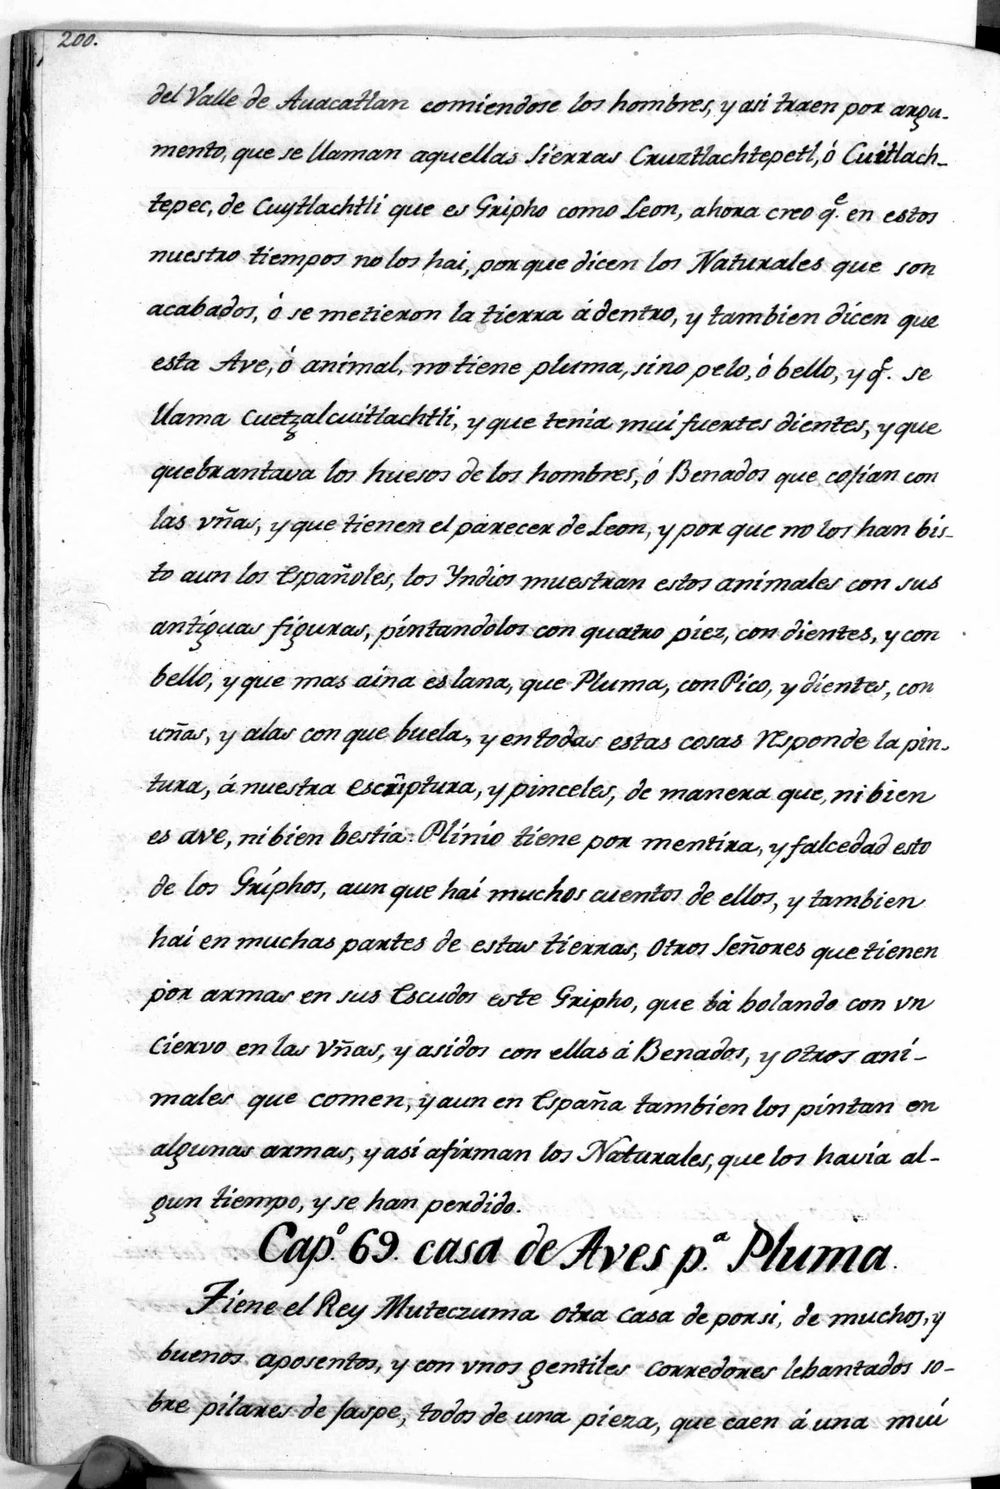 200.
del Valle de Auacatlan comiendose los hombres, y asi traen por argu-
mento, que se llaman aquellas Sierras Cruztlachtepetl, ó Cuitlach-
tepec, de Cuytlachtli que es Gripho como Leon, ahora creo q.e en estos
nuestro tiempos no los hai, por que dicen los Naturales que son
acabados, ó se metieron la tierra á dentro, y tambien dicen que
esta Ave, ó animal, no tiene pluma, sino pelo, ó bello, y q.e se
llama Cuetzalcuitlachtli, y que tenia mui fuertes dientes, y que
quebrantava los huesos de los hombres, ó Benados que cojian con
las vñas, y que tienen el parecer de Leon, y por que no los han bis-
to aun los Españoles, los Yndios muestran estos animales con sus
antiguas figuras, pintandolos con quatro piez, con dientes, y con
bello, y que mas aina es lana, que Pluma, con Pico, y dientes, con
uñas, y alas con que buela, y en todas estas cosas responde la pin-
tura, á nuestra escriptura, y pinceles, de manera que, ni bien
es ave, ni bien bestia: Plinio tiene por mentira, y falcedad esto
de los Griphos, aun que hai muchos cuentos de ellos, y tambien
hai en muchas partes de estas tierras, otros Señores que tienen
por armas en sus Escudos este Gripho, que bá bolando con vn
Ciervo en las Vñas, y asidos con ellas á Benados, y otros ani-
males que comen, y aun en España tambien los pintan en
algunas armas, y asi afirman los Naturales, que los havia al-
gun tiempo, y se han perdido.
Cap.o 69. casa de Aves p.a Pluma.
Tiene el Rey Muteczuma otra Casa de por si, de muchos, y
buenos aposentos, y con vnos gentiles corredores lebantados so-
bre pilares de Jaspe, todos de una pieza, que caen á una mui